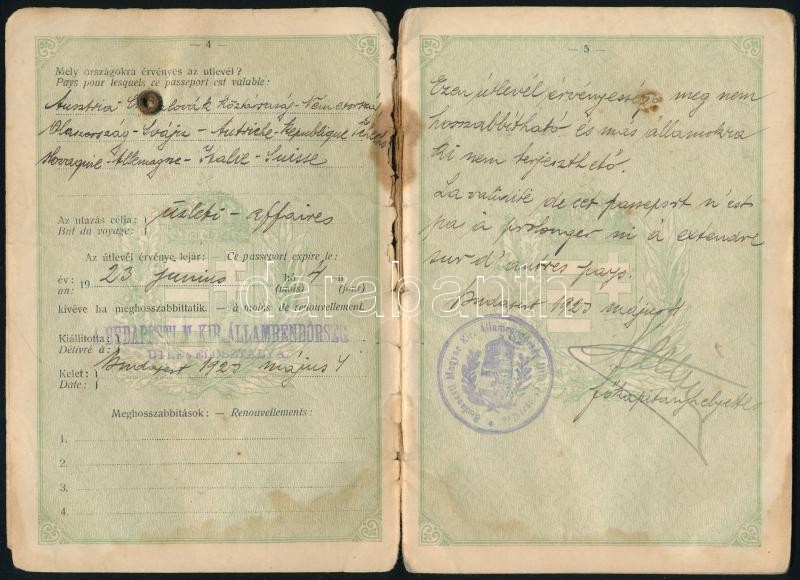 — 4 —
Mely országokra érvényes az utlevél?
Pays pour lesquels ce passeport est valable:
Ausztria köztársaság - Németország
Olaszország - Svájc - Autriche - République
slovaquie - Allemagne - Italie - Suisse
Az utazás célja:
But du voyage:
üzleti - affaires
Az útlevél érvénye lejár: Ce passeport expire le:
év: 19 23 junius hó 4 n
an: (mois) (jour)
kivéve ha meghosszabbittatik. — à moins de renouvellement.
Kiállitotta:
Délivré à:
A BUDAPESTI M. KIR. ÁLLAMRENDŐRSÉG
UTLEVÉLOSZTÁLYA.
Kelet: Budapest 1923 május 4
Date:
Meghosszabbitások: — Renouvellements:
1.
2.
3.
4.
— 5 —
Ezen útlevél érvényessége meg nem
hosszabbítható és más államokra
ki nem terjeszthető.
La validité de cet passeport n'est
pas à prolonger ni à extendre
sur d'autres pays.
Budapest 1923 május 4
főkapitányhelyettes
Budapesti Magyar Kir. Államrendőrség
darabanth.com